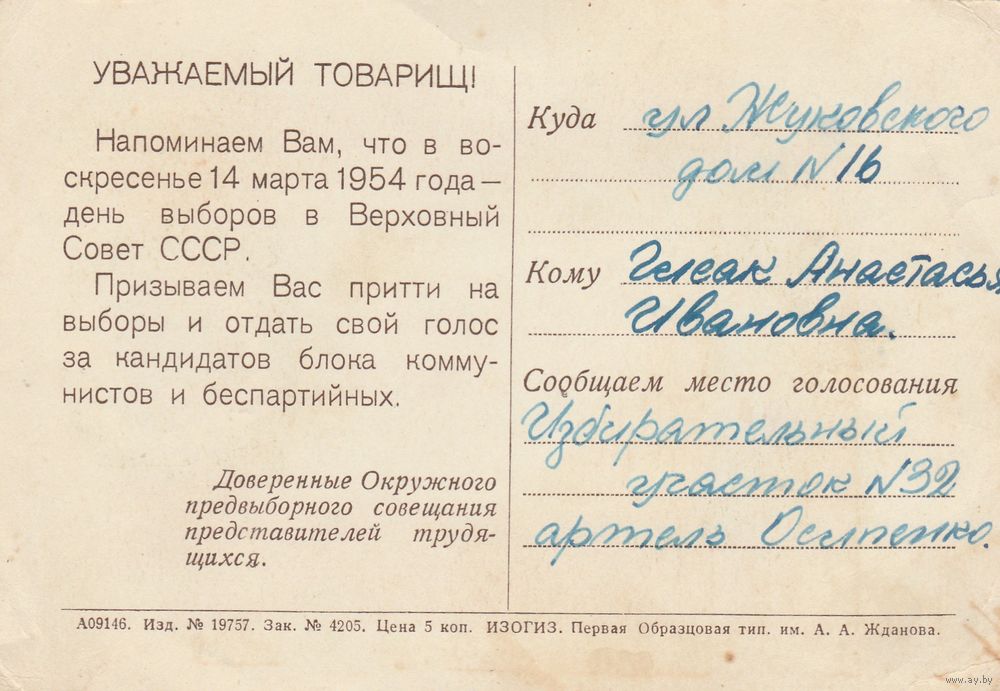 УВАЖАЕМЫЙ ТОВАРИЩ!
Напоминаем Вам, что в во-
скресенье 14 марта 1954 года —
день выборов в Верховный
Совет СССР.
Призываем Вас притти на
выборы и отдать свой голос
за кандидатов блока комму-
нистов и беспартийных.
Доверенные Окружного
предвыборного совещания
представителей трудя-
щихся.
Куда ул Жуковского
дом N 16
Кому Анастасья
Ивановна.
Сообщаем место голосования
Избирательный
участок N32
артель Осипенко.
А09146. Изд. № 19757. Зак. № 4205. Цена 5 коп. ИЗОГИЗ. Первая Образцовая тип. им. А. А. Жданова.
www.ay.by